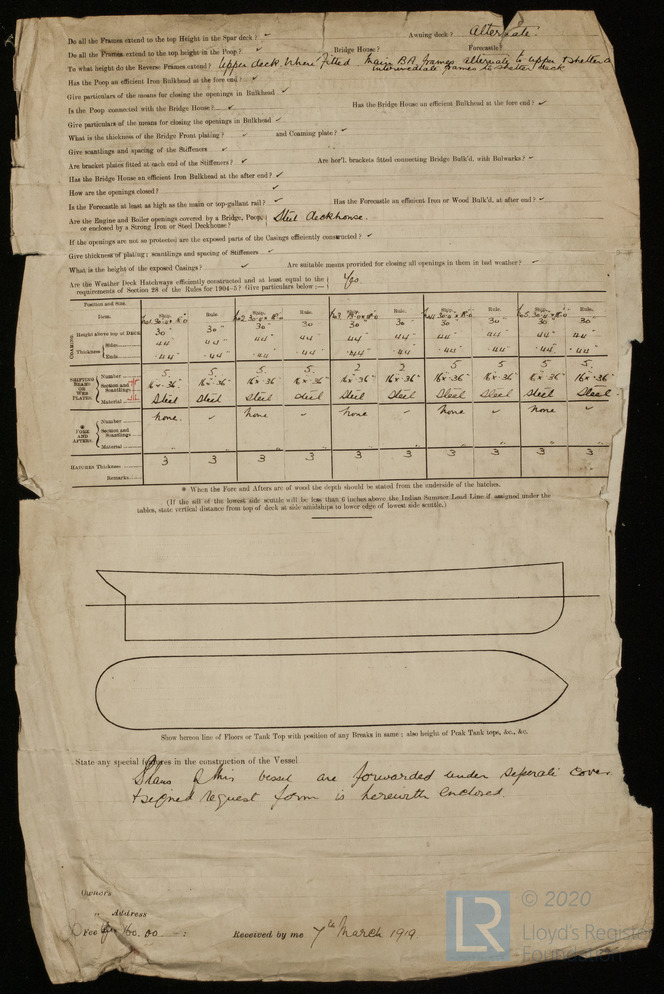 Do all the Frames extend to the top Height in the Spar deck? ✓ Awning deck? Alternate.
Do all the Frames extend to the top height in the Poop? ✓ Bridge House? Forecastle?
To what height do the Reverse Frames extend? Upper deck Where Fitted Main BA frames alternate to upper & shelter d
intermediate frames to shelter deck
Has the Poop an efficient Iron Bulkhead at the fore end? ✓
Give particulars of the means for closing the openings in Bulkhead ✓
Is the Poop connected with the Bridge House? ✓ Has the Bridge House an efficient Bulkhead at the fore end? ✓
Give particulars of the means for closing the openings in Bulkhead ✓
What is the thickness of the Bridge Front plating? ✓ and Coaming plate? ✓
Give scantlings and spacing of the Stiffeners ✓
Are bracket plates fitted at each end of the Stiffeners? ✓ Are hor'l. brackets fitted connecting Bridge Bulk'd. with Bulwarks? ✓
Has the Bridge House an efficient Iron Bulkhead at the after end? ✓
How are the openings closed? ✓
Is the Forecastle at least as high as the main or top-gallant rail? ✓ Has the Forecastle an efficient Iron or Wood Bulk'd. at after end? ✓
Are the Engine and Boiler openings covered by a Bridge, Poop, Steel deckhouse.
or enclosed by a Strong Iron or Steel Deckhouse?
If the openings are not so protected are the exposed parts of the Casings efficiently constructed? ✓
Give thickness of plating; scantlings and spacing of Stiffeners ✓
What is the height of the exposed Casings? ✓ Are suitable means provided for closing all openings in them in bad weather? ✓
Are the Weather Deck Hatchways efficiently constructed and at least equal to the Yes.
requirements of Section 28 of the Rules for 1904-5? Give particulars below:—
Position and Size.
Item. Ship. Rule. Ship. Rule. Ship. Rule. Ship. Rule. Ship. Rule.
COAMING Height above top of DECK 30" 30" 30" 30 30" 30" 30" 30" 30" 30"
Thickness Sides .44 .44" .44" .44" .44" .44" .44" .44" .44" .44
Ends .44" .44" .44" .44" .44" .44" .44" .44" .44" .44"
SHIFTING BEAMS OR WEB PLATES. Number 5. 5. 5. 5. 2 2 5. 5. 5. 5.
Section and Scantlings 16 x .36" 16 x .36" 16 x .36" 16 x .36" 16 x .36" 16 x .36" 16 x .36" 16 x .36" 16 x .36" 16 x .36"
Material Steel Steel Steel Steel Steel Steel Steel Steel Steel Steel
* FORE AND AFTERS. Number None. ✓ None ✓ None ✓ None ✓ None. ✓
Section and Scantlings
Material
HATCHES Thickness 3 3 3 3 3 3 3 3 3 3
Remarks
* When the Fore and Afters are of wood the depth should be stated from the underside of the hatches.
(If the sill of the lowest side scuttle will be less than 6 inches above the Indian Summer Load Line if assigned under the
tables, state vertical distance from top of deck at side amidships to lower edge of lowest side scuttle.)
Show hereon line of Floors or Tank Top with position of any Breaks in same; also height of Peak Tank tops, &c., &c.
State any special features in the construction of the Vessel
Plans of this vessel are forwarded under seperate cover
& signed request form is herewith enclosed.
Owners
„ Address
Fee 160.00 Received by me 7th March 1919
LR © 2020
Lloyd's Register
Foundation